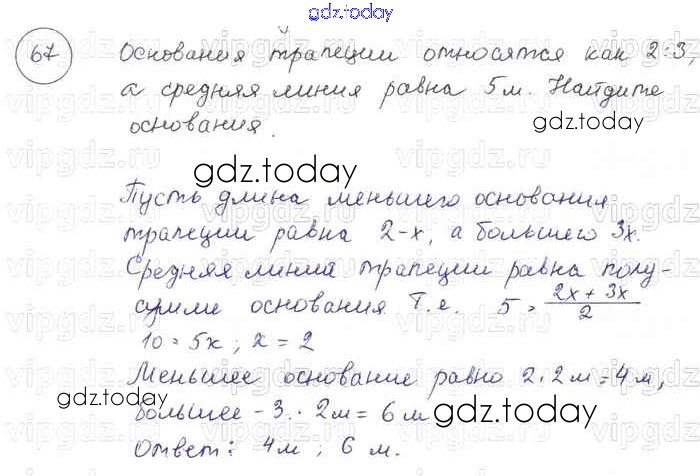 gdz.today
67 Основания трапеции относятся как 2:3,
а средняя линия равна 5 м. Найдите
основания.
gdz.today
gdz.today
Пусть длина меньшего основания
трапеции равна 2-x, а большего 3x.
Средняя линия трапеции равна полу-
сумме основания т.е. 5 = (2x + 3x)/2
10 = 5x ; x = 2
Меньшее основание равно 2·2м = 4м,
gdz.today
большее - 3 · 2м = 6м
gdz.today
Ответ: 4м ; 6 м.